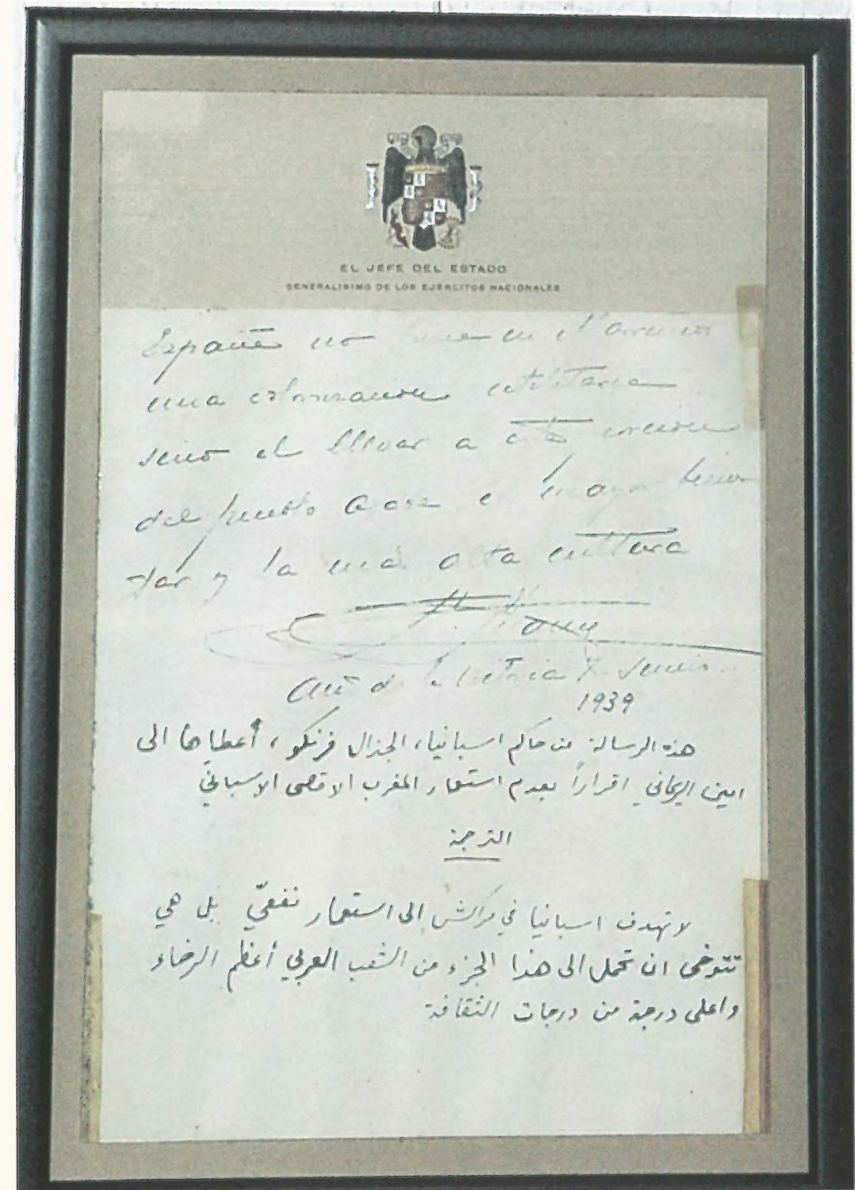 EL JEFE DEL ESTADO
GENERALISIMO DE LOS EJERCITOS NACIONALES
España no en Marruecos
una colonizacion utilitaria
sino el llevar a esta
del pueblo arabe el mayor bienes
tar y la mas alta cultura
F. Franco
Año de la Victoria
1939
هذه الرسالة من حاكم اسبانيا، الجنرال فرنكو، أعطاها الى
امين الريحاني اقراراً بعدم استعمار المغرب الاقصى الاسباني
الترجمة
لا تهدف اسبانيا في مراكش الى استعمار نفعيّ بل هي
تتوخى ان تحمل الى هذا الجزء من الشعب العربي أعظم الرخاء
واعلى درجة من درجات الثقافة